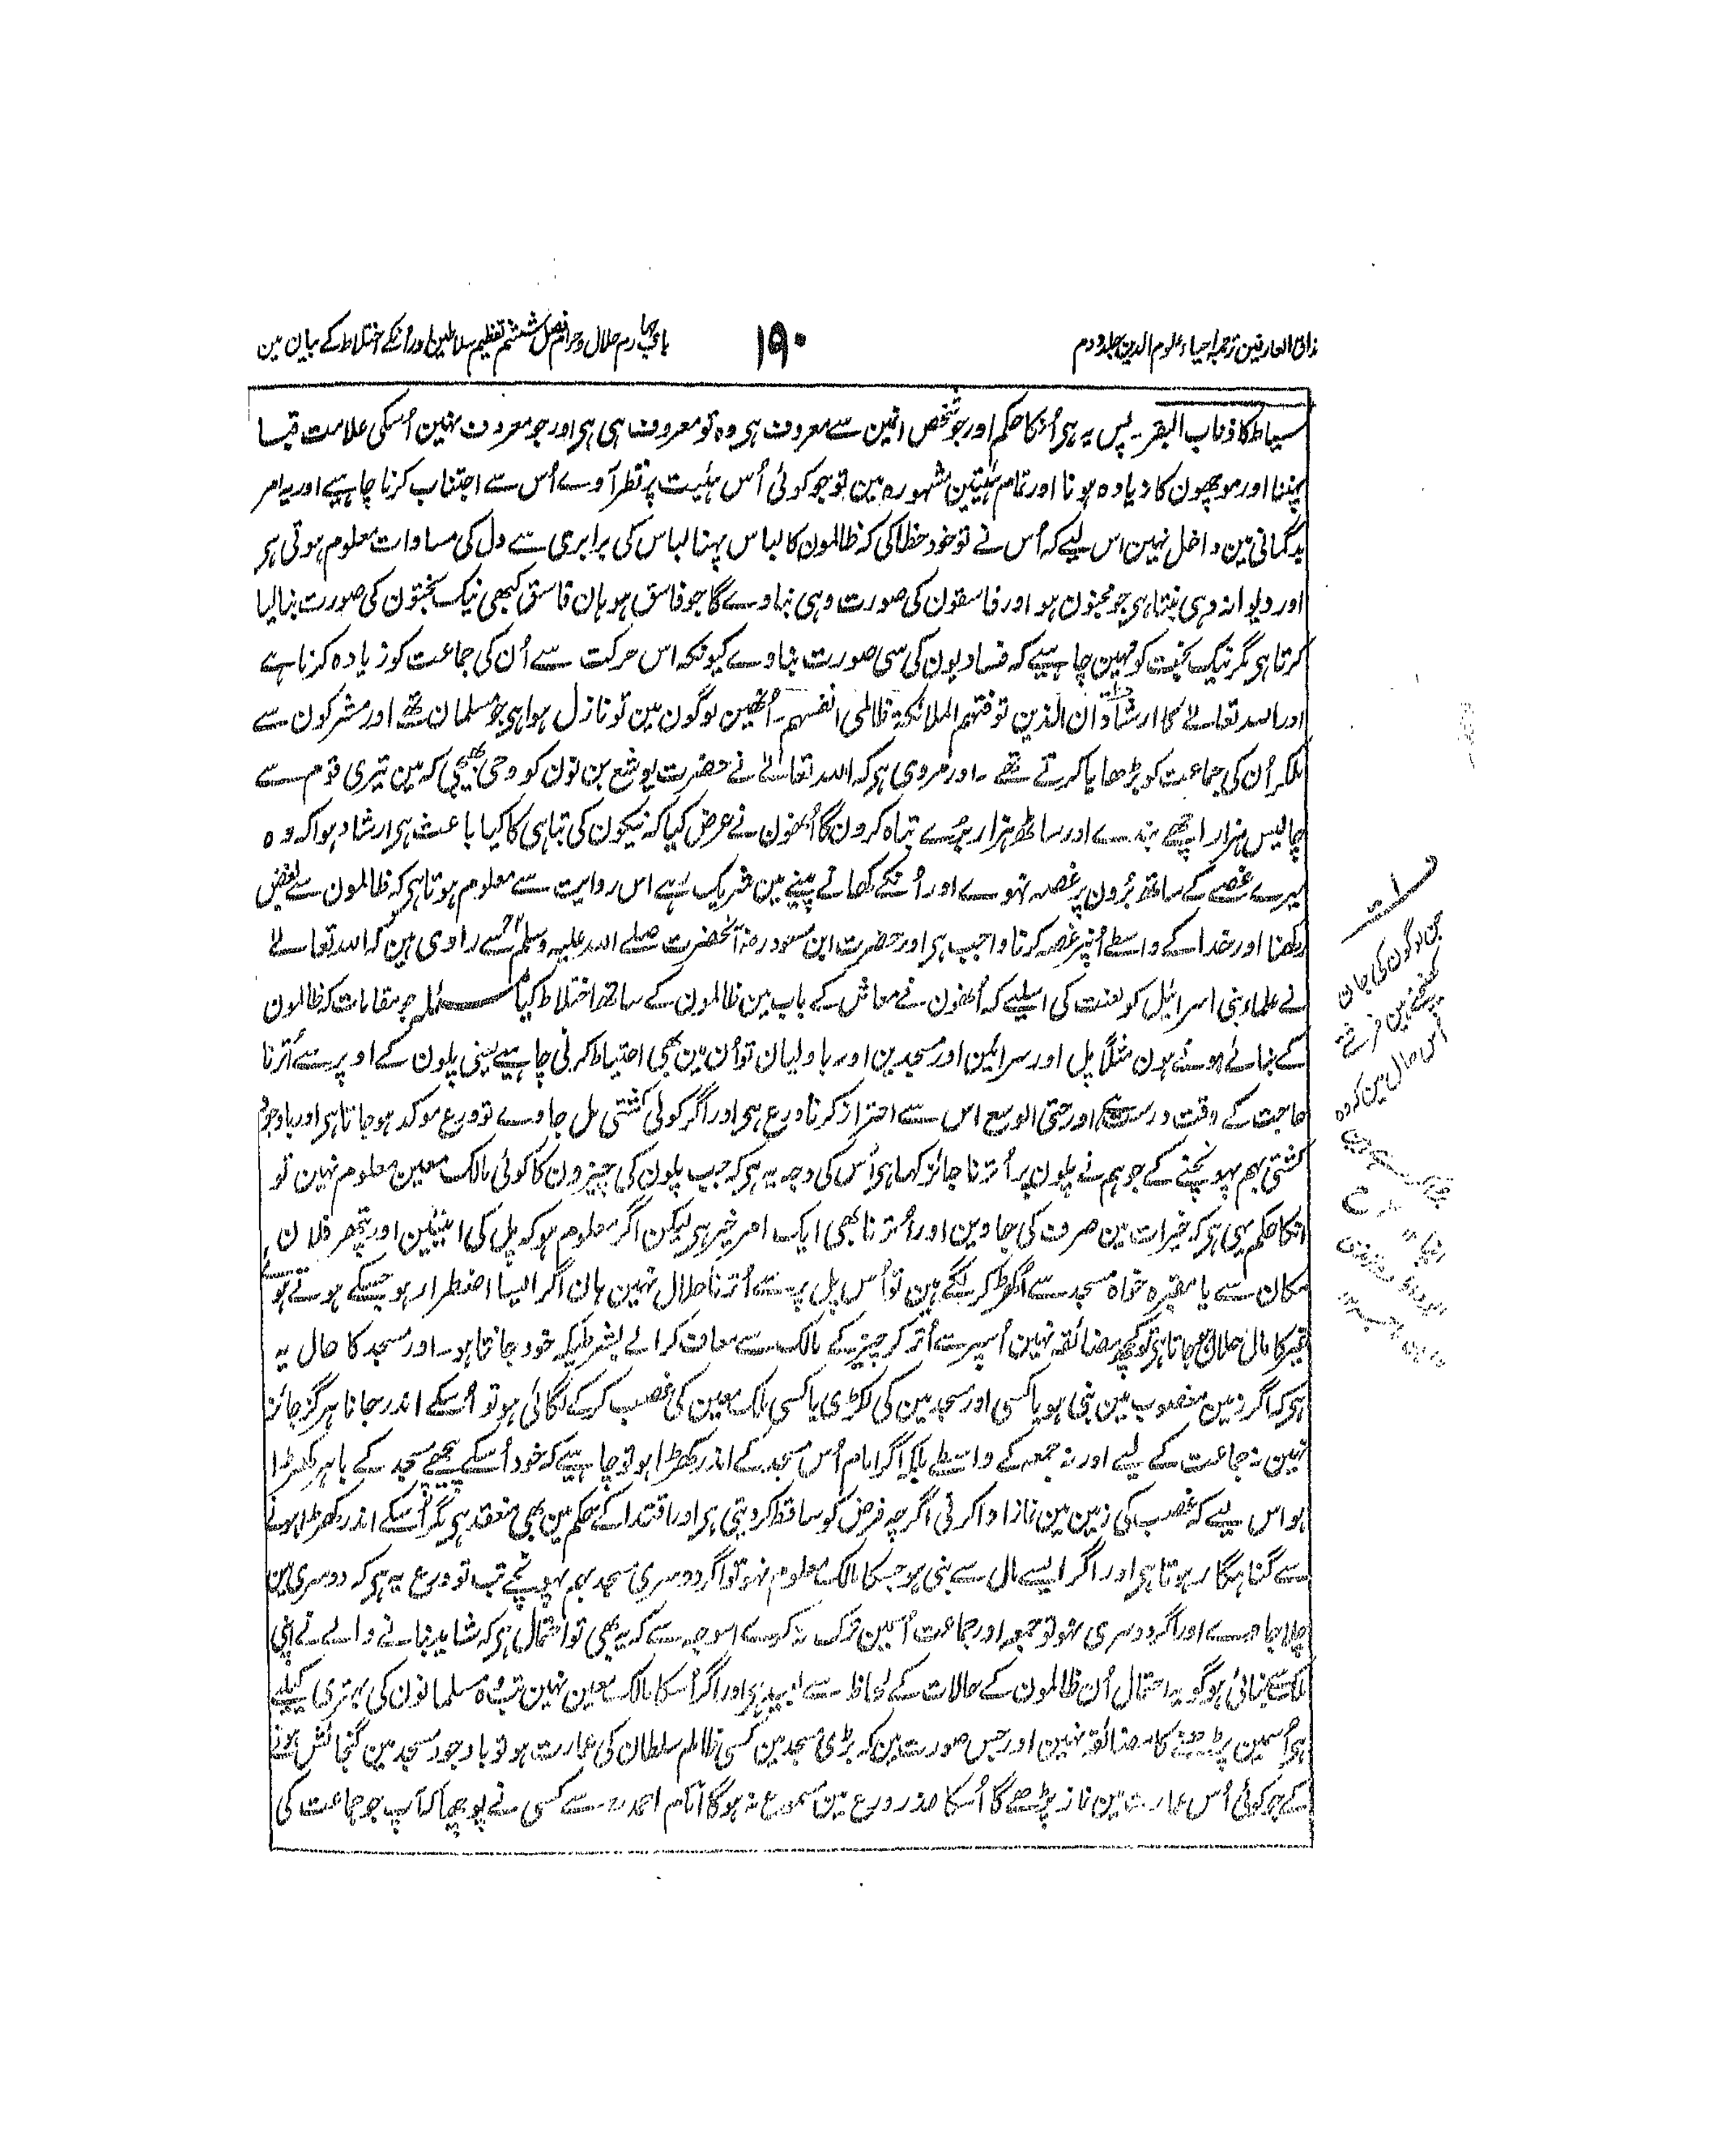 مذاق العارفین ترجمہ احیاء علوم الدین جلد دوم
۱۹۰
باب چہارم حلال و حرام فصل ششم تعظیم سلاطین اور اُنکے اختلاط کے بیان مین
سیاط کاذناب البقر۔ پس یہ ہی اُنکا حکم اور جو شخص انمین سے معروف ہی وہ تو معروف ہی ہی اور جو معروف نہین اُسکی علامت قبا
پہننا اور موچھون کا زیادہ ہونا اور تمام ہیئتین مشہورہ ہین تو جو کوئی اُس ہئیت پر نظر آوے اُس سے اجتناب کرنا چاہیے اور یہ امر
بدگمانی مین داخل نہین اس لیے کہ اُس نے تو خود خطا کی کہ ظالمون کا لباس پہنا لباس کی برابری سے دل کی مساوات معلوم ہوتی ہی
اور دیوانہ وہی بنتا ہی جو مجنون ہو اور فاسقون کی صورت وہی بناوے گا جو فاسق ہو ہان فاسق کبھی نیک بختون کی صورت بنا لیا
کرتا ہی مگر نیک بخت کو نہین چاہیے کہ فسادیون کی سی صورت بناوے کیونکہ اس حرکت سے اُن کی جماعت کو زیادہ کرنا ہے
اور اللہ تعالےٰ کا ارشاد ان الذین توفتہم الملائکۃ ظالمی انفسہم۔ اُنھین لوگون مین تو نازل ہوا ہی جو مسلمان تھے اور مشرکون سے
ملکر اُن کی جماعت کو بڑھایا کرتے تھے۔ اور مروی ہی کہ اللہ تعالےٰ نے حضرت یوشع بن نون کو وحی بھیجی کہ مین تیری قوم سے
چالیس ہزار اچھے بندے اور ساٹھ ہزار بُرے تباہ کرون گا اُنھون نے عرض کیا کہ نیکون کی تباہی کا کیا باعث ہی ارشاد ہوا کہ وہ
میرے غصے کے ساتھ بُرون پر غصہ نہوے اور اُنکے کھانے پینے مین شریک رہے اس روایت سے معلوم ہوتا ہی کہ ظالمون سے بغض
رکھنا اور خدا کے واسطے اُنپر غصہ کرنا واجب ہی اور حضرت ابن مسعود رضہ آنحضرت صلے اللہ علیہ وسلم سے راوی ہین کہ اللہ تعالےٰ
نے علماء بنی اسرائیل کو لعنت کی اسلیے کہ اُنھون نے معاش کے باب مین ظالمون کے ساتھ اختلاط کیا مسئلہ جو مقامات کہ ظالمون
کے بنائے ہوئے ہون مثلاً پل اور سرائین اور مسجدین اور باولیان تو اُن مین بھی احتیاط کرنی چاہیے یعنی پلون کے اوپر سے اُترنا
حاجت کے وقت درست ہی اور حتی الوسع اس سے احتراز کرنا ورع ہی اور اگر کوئی کشتی مل جاوے تو ورع موکد ہو جاتا ہی اور باوجود
کشتی بھم پہونچنے کے جو ہم نے پلون پر اُترنا جائز کہا ہی اُس کی وجہ یہ ہی کہ جب پلون کی چیزون کا کوئی مالک معین معلوم نہین تو
انکا حکم یہی ہی کہ خیرات مین صرف کی جاوین اور اُترنا بھی ایک امر خیر ہی لیکن اگر معلوم ہو کہ پل کی اینٹین اور پتھر فلان
مکان سے یا مقبرہ خواہ مسجد سے اُکھڑ کر لگے ہین تو اُس پل پر سے اُترنا حلال نہین ہان اگر ایسا اضطرار ہو جسکے ہوتے ہوئے
غیر کا مال حلال ہو جاتا ہی تو کچھ مضائقہ نہین اُسپر سے اُتر کر چیز کے مالک سے معاف کرالے بشرطیکہ خود جانتا ہو۔ اور مسجد کا حال یہ
ہی کہ اگر زمین مغصوب مین بنی ہو یا کسی اور مسجد مین کی لکڑی یا کسی ملک معین کی غصب کرکے لگائی ہو تو اُسکے اندر جانا ہرگز جائز
نہین نہ جماعت کے لیے اور نہ جمعہ کے واسطے بلکہ اگر امام اُس مسجد کے اندر کھڑا ہو تو چاہیے کہ خود اُسکے پیچھے مسجد کے باہر کھڑا
ہو اس لیے کہ غصب کی زمین مین نماز ادا کرنی اگرچہ فرض کو ساقط کر دیتی ہی اور اقتدا کے حکم مین بھی منعقد ہی مگر اُسکے اندر کھڑا ہونے
سے گناہگار ہوتا ہی اور اگر ایسے مال سے بنی ہو جسکا مالک معلوم نہو تو اگر دوسری مسجد بہم پہونچے تب تو ورع یہ ہی کہ دوسری مین
چلا جاوے اور اگر دوسری نہو تو جمعہ اور جماعت اُسمین ترک نہ کرے اسوجہ سے کہ یہ بھی تو احتمال ہی کہ شاید بنانے والے نے اپنی
ملک سے بنائی ہو گو یہ احتمال اُن ظالمون کے حالات کے لحاظ سے بعید ہی اور اگر اُسکا مالک معین نہین تب وہ مسلمانون کی بہتری کیلیے
ہی اُسمین پڑھنے کا مضائقہ نہین اور جس صورت مین کہ بڑی مسجد مین کسی ظالم سلطان کی عمارت ہو تو باوجود مسجد مین گنجائش ہونے
کے جو کوئی اُس عمارت مین نماز پڑھے گا اُسکا عذر ورع مین مسموع نہ ہوگا امام احمد رح سے کسی نے پوچھا کہ آپ جو جماعت کی
جن لوگون کی جان
کھینچتے ہین فرشتے
اُس حال مین کہ وہ